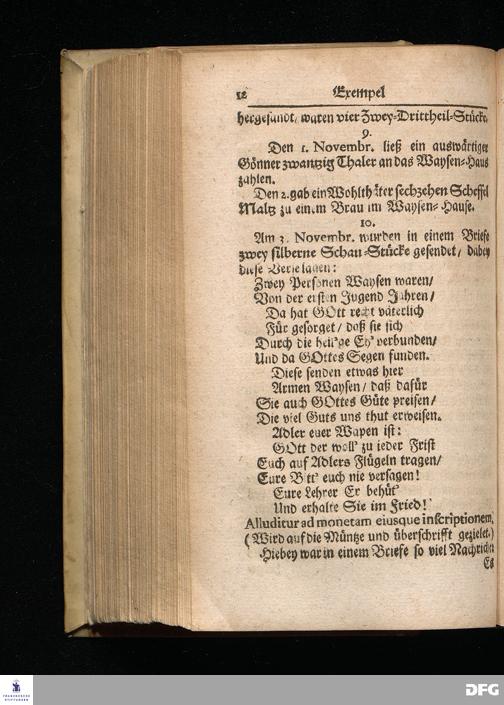 12 Exempel
hergesandt, waren vier Zwey-Drittheil-Stücke.
9.
Den 1. Novembr. ließ ein auswärtiger
Gönner zwantzig Thaler an das Waysen-Haus
zahlen.
Den 2. gab ein Wohlthäter sechzehen Scheffel
Maltz zu einem Brau im Waysen-Hause.
10.
Am 3. Novembr. wurden in einem Briefe
zwey silberne Schau-Stücke gesendet/ dabey
diese Verse lagen:
Zwey Personen Waysen waren/
Von der ersten Jugend Jahren/
Da hat GOtt recht väterlich
Für gesorget/ daß sie sich
Durch die heil'ge Eh' verbunden/
Und da GOttes Segen funden.
Diese senden etwas hier
Armen Waysen/ daß dafür
Sie auch GOttes Güte preisen/
Die viel Guts uns thut erweisen.
Adler euer Wapen ist:
GOtt der woll' zu jeder Frist
Euch auf Adlers Flügeln tragen/
Eure Bitt' euch nie versagen!
Eure Lehrer Er behüt'
Und erhalte Sie im Fried!
Alluditur ad monetam eiusque inscriptionem,
(Wird auf die Müntze und überschrifft gezielet.)
Hiebey war in einem Briefe so viel Nachricht:
Es
FRANCKESCHE
STIFTUNGEN
DFG